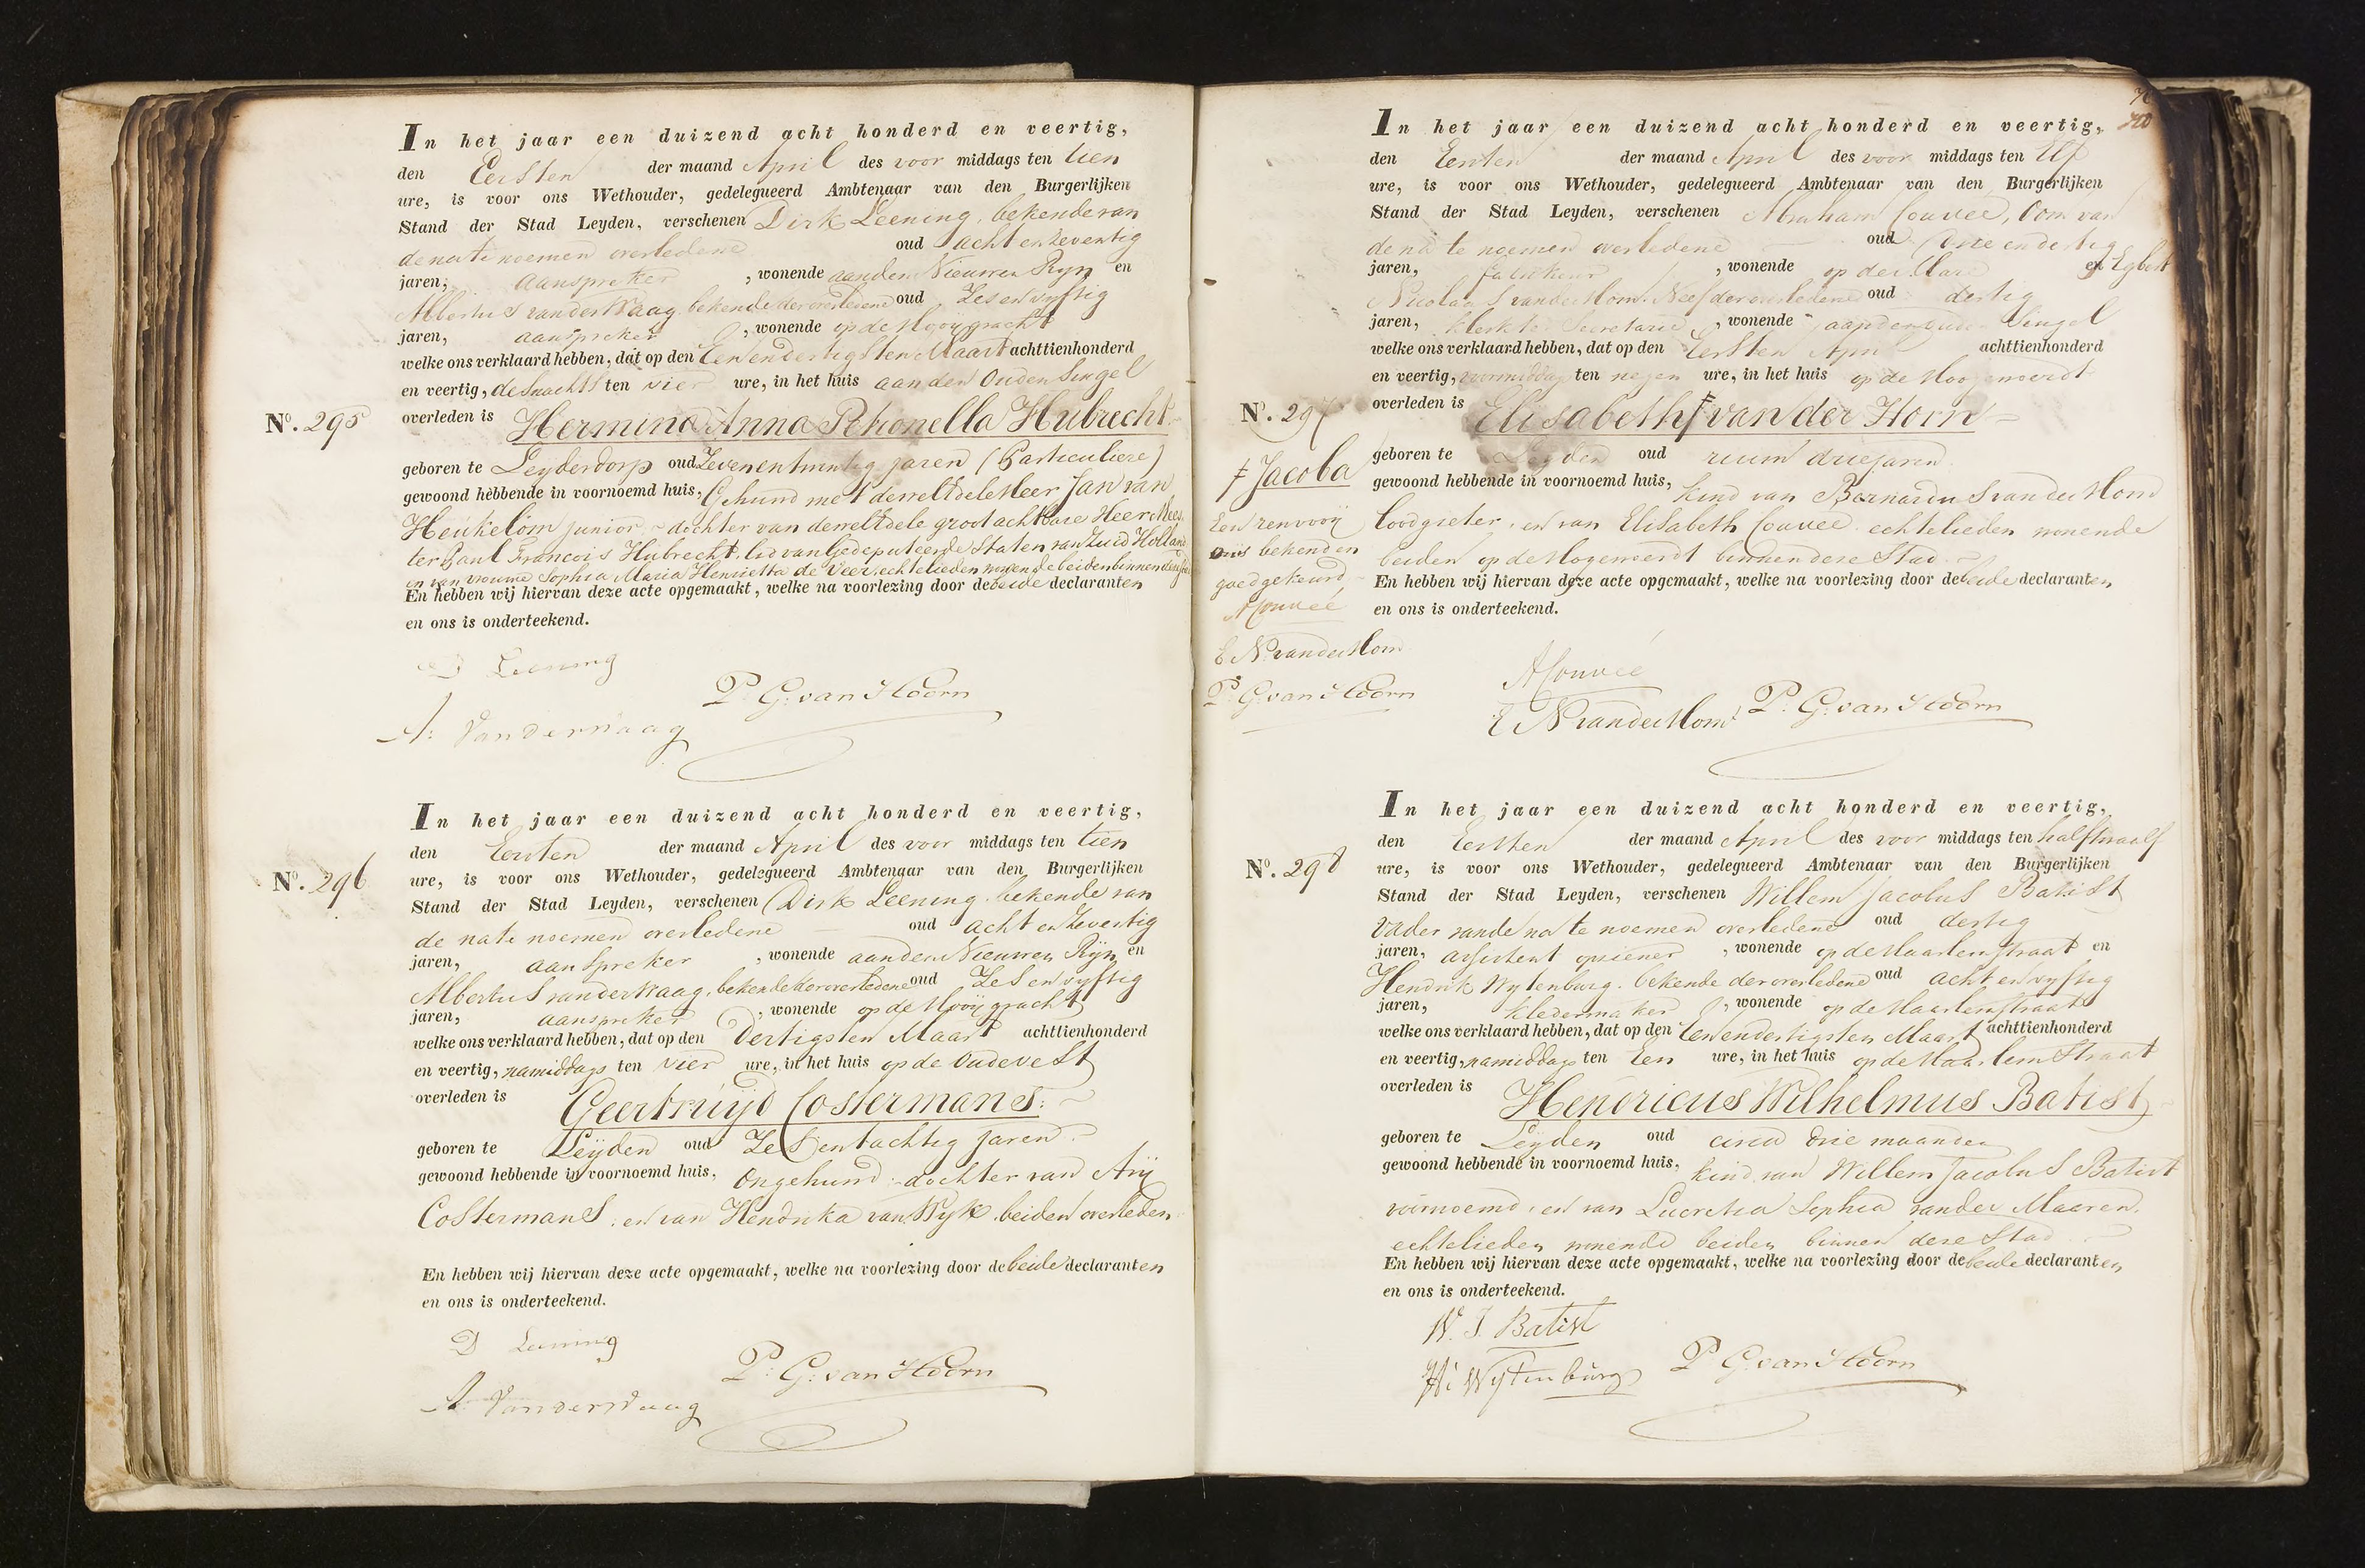 In het jaar een duizend acht honderd en veertig,
den Eersten der maand April des voor middags ten tien
ure, is voor ons Wethouder, gedelegueerd Ambtenaar van den Burgerlijken
Stand der Stad Leyden, verschenen Dirk Leening, bekende van
de na te noemen overledene oud acht en zeventig
jaren, aanspreker, wonende aan den Nieuwen Ryn en
Albertus van der Waag, bekende der overledene oud Zes en vyftig
jaren, aanspreker, wonende op de Hooygracht
welke ons verklaard hebben, dat op den Een en dertigsten Maart achttienhonderd
en veertig, des nachts ten vier ure, in het huis aan den Ouden Singel
No. 295 overleden is Hermina Anna Petronella Hubrecht
geboren te Leyderdorp oud Zeven en twintig jaren (Particuliere)
gewoond hebbende in voornoemd huis, Gehuwd met den weledele Heer Jan van
Heukelom junior - dochter van den weledele groot achtbare Heer Mees
ter Paul Francois Hubrecht, lid van Gedeputeerde Staten van Zuid Holland
en van vrouwe Sophia Maria Henrietta de Veer, echtelieden wonende beiden binnen deze Stad
En hebben wij hiervan deze acte opgemaakt, welke na voorlezing door de beide declaranten
en ons is onderteekend.
D Leening
P. G. van Hoorn
A. Van der Waag
In het jaar een duizend acht honderd en veertig,
den Eersten der maand April des voor middags ten tien
No. 296 ure, is voor ons Wethouder, gedelegueerd Ambtenaar van den Burgerlijken
Stand der Stad Leyden, verschenen Dirk Leening, bekende van
de na te noemen overledene oud acht en zeventig
jaren, aanspreker, wonende aan den Nieuwen Ryn en
Albertus van der Waag, bekende der overledene oud Zes en vyftig
jaren, aanspreker, wonende op de Hooygracht
welke ons verklaard hebben, dat op den Dertigsten Maart achttienhonderd
en veertig, namiddags ten vier ure, in het huis op de Oudevest
overleden is Geertruyd Costermans
geboren te Leyden oud Zes en tachtig jaren
gewoond hebbende in voornoemd huis, Ongehuwd - dochter van Ary
Costermans, en van Hendrika van Wyk, beiden overleden
En hebben wij hiervan deze acte opgemaakt, welke na voorlezing door de beide declaranten
en ons is onderteekend.
D Leening
P. G. van Hoorn
A. Van der Waag
In het jaar een duizend acht honderd en veertig,
den Eersten der maand April des voor middags ten Elf
ure, is voor ons Wethouder, gedelegueerd Ambtenaar van den Burgerlijken
Stand der Stad Leyden, verschenen Abraham Couvee, Oom van
de na te noemen overledene oud drie en dertig
jaren, fabrikeur, wonende op de Mare en Egbert
Nicolaas van der Horn, Neef der overledene oud dertig
jaren, klerk te Secretarie, wonende aan den Ouden Singel
welke ons verklaard hebben, dat op den Eersten April achttienhonderd
en veertig, voormiddag ten negen ure, in het huis op de Hoogewoerdt
No. 297 overleden is Elisabeth ‡ van der Horn
‡ Jacoba
geboren te Leyden oud ruim drie jaren
gewoond hebbende in voornoemd huis, kind van Bernardus van der Horn
loodgieter, en van Elisabeth Couvee, echtelieden wonende
beiden op de Hogewoerdt binnen deze Stad
Een renvooij
ons bekend en
goedgekeurd
A Couvée
E N van der Horn
P. G. van Hoorn
En hebben wij hiervan deze acte opgemaakt, welke na voorlezing door de beide declaranten
en ons is onderteekend.
A Couvée
E N van der Horn
P. G. van Hoorn
In het jaar een duizend acht honderd en veertig,
den Eersten der maand April des voor middags ten half twaalf
No. 298 ure, is voor ons Wethouder, gedelegueerd Ambtenaar van den Burgerlijken
Stand der Stad Leyden, verschenen Willem Jacobus Batist
Vader van de na te noemen overledene oud dertig
jaren, assistent opziener, wonende op de Haarlemstraat en
Hendrik Wytenburg, bekende der overledene oud acht en vyftig
jaren, kledermaker, wonende op de Haarlemstraat
welke ons verklaard hebben, dat op den Een en dertigsten Maart achttienhonderd
en veertig, namiddags ten Een ure, in het huis op de Haarlemstraat
overleden is Henoricus Wilhelmus Batist
geboren te Leyden oud circa drie maanden
gewoond hebbende in voornoemd huis, kind van Willem Jacobus Batist
voornoemd, en van Lucretia Sophia van der Maaren,
echtelieden wonende beiden binnen deze Stad
En hebben wij hiervan deze acte opgemaakt, welke na voorlezing door de beide declaranten
en ons is onderteekend.
W. J. Batist
H. Wytenburg
P. G. van Hoorn